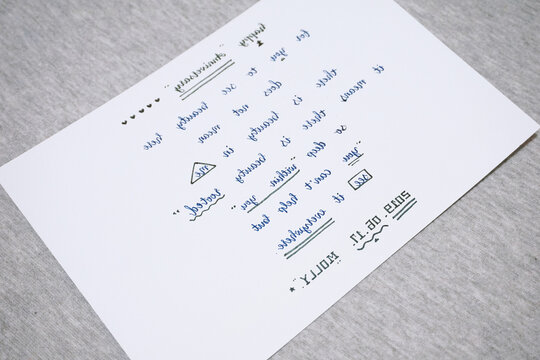 happy Anniversary ♥♥♥♥♥
for you to see beauty here
does not mean
there is beauty in me
it means
there is beauty rooted
so deep within you
you can't help but
see it everywhere
2019.06.17 MOLLY